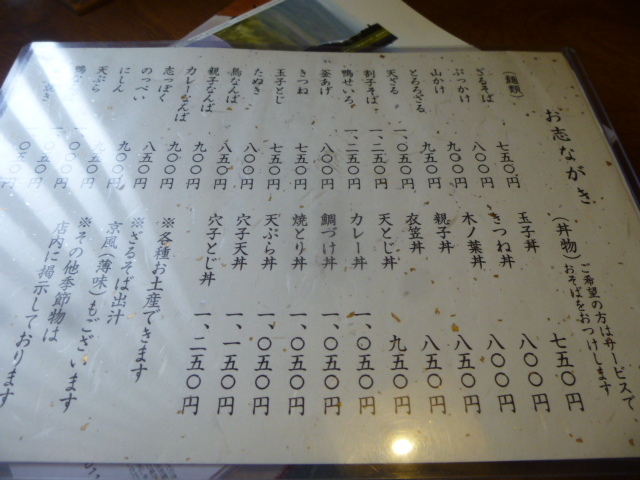 お志ながき
(麺類)
ざるそば 七五〇円
ぶっかけ 八〇〇円
山かけ 九〇〇円
とろろざる 九五〇円
天ざる 一、〇五〇円
割子そば 一、二五〇円
鴨せいろ 一、二五〇円
釜あげ 八〇〇円
きつね 七五〇円
玉子とじ 七五〇円
たぬき 八五〇円
鳥なんば 八五〇円
親子なんば 九〇〇円
カレーなんば 九〇〇円
志っぽく 八五〇円
のっぺい 九〇〇円
にしん 九五〇円
天ぷら 一、〇〇〇円
一、〇五〇円
(丼物)ご希望の方はサービスで
おそばをおつけします
玉子丼 七五〇円
きつね丼 八〇〇円
木ノ葉丼 八〇〇円
親子丼 八五〇円
衣笠丼 八五〇円
天とじ丼 九五〇円
カレー丼 一、〇五〇円
鯛づけ丼 一、〇五〇円
焼とり丼 一、〇五〇円
天ぷら丼 一、〇五〇円
穴子天丼 一、一五〇円
穴子とじ丼 一、二五〇円
※各種お土産できます
※ざるそば出汁
京風(薄味)もございます
※その他季節物は
店内に掲示しております